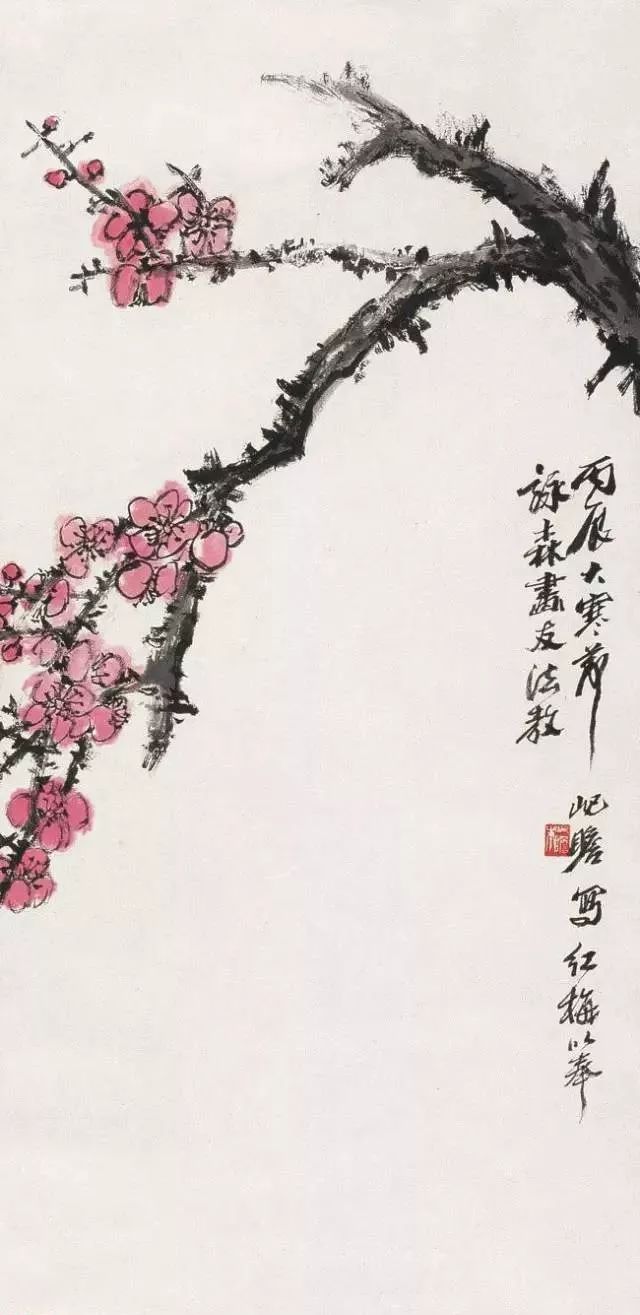 丙辰大寒節
屺瞻寫红梅以奉
詠森畫友法教